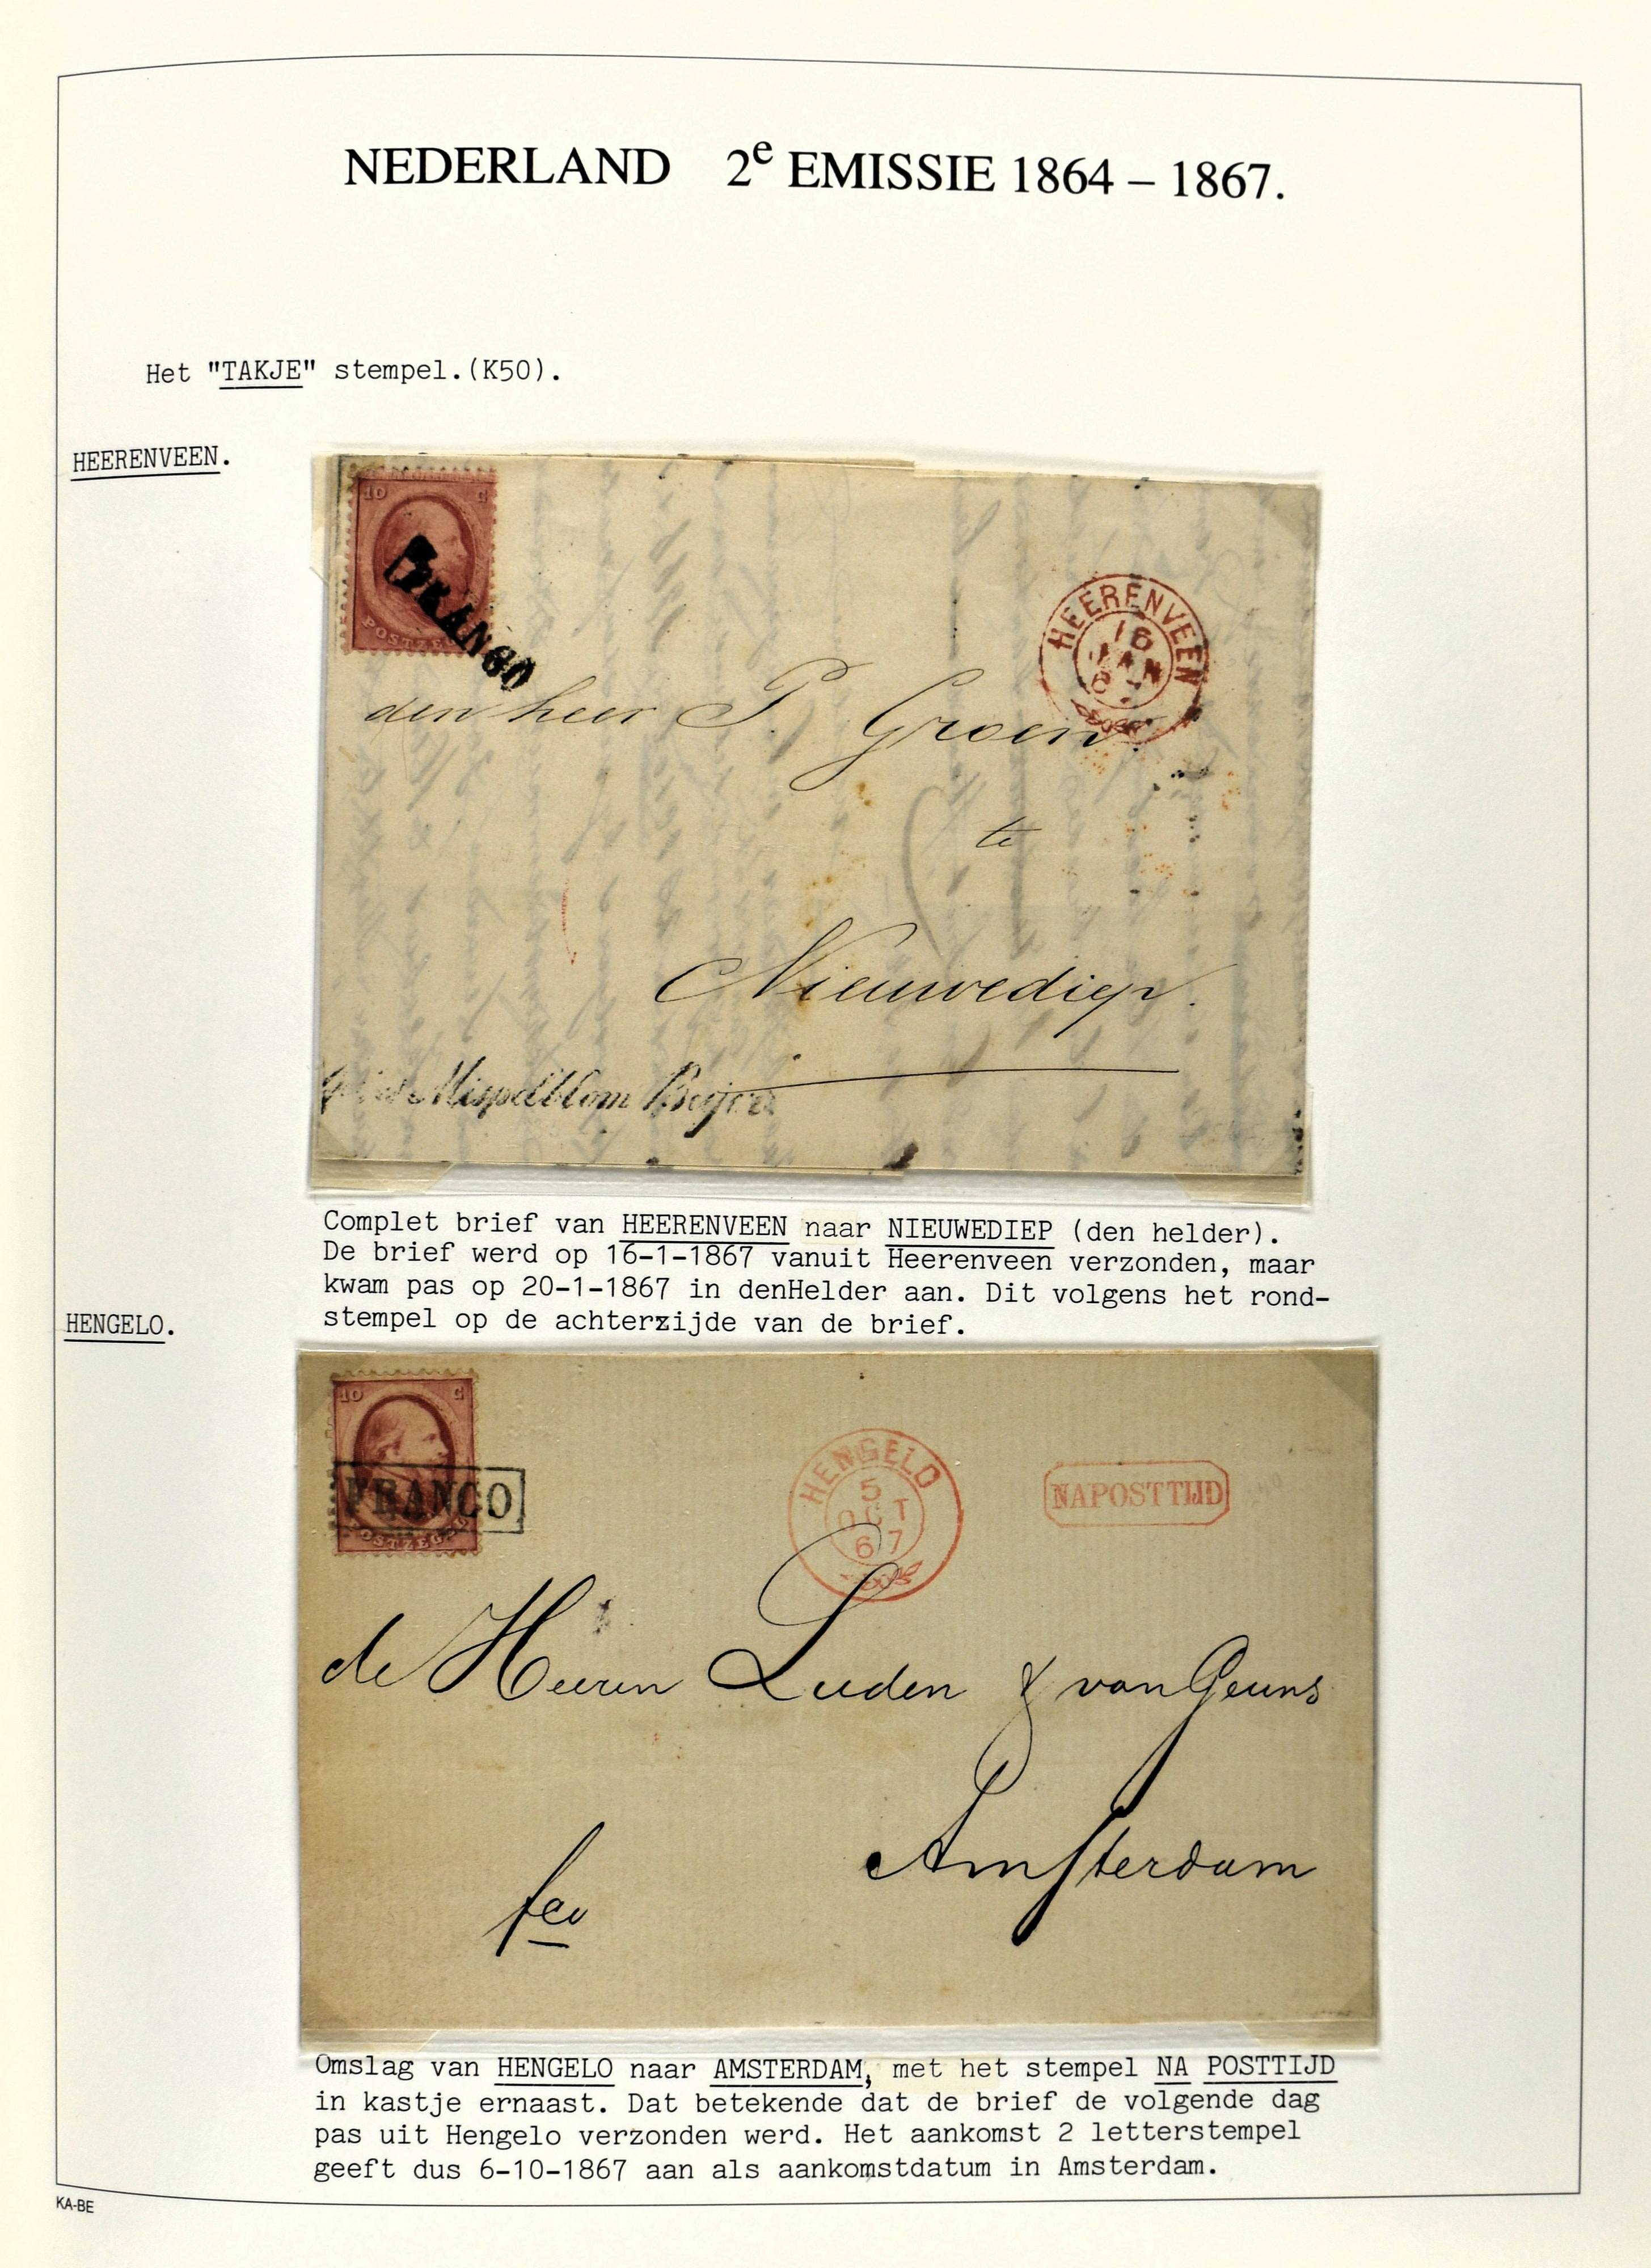 NEDERLAND 2e EMISSIE 1864 – 1867.
Het "TAKJE" stempel.(K50).
HEERENVEEN.
10 C
POSTZEGEL
FRANCO
HEERENVEEN
16
JAN
67
den heer P. Groen
te
Nieuwediep.
Mispelblom Beijer
Complet brief van HEERENVEEN naar NIEUWEDIEP (den helder).
De brief werd op 16-1-1867 vanuit Heerenveen verzonden, maar
kwam pas op 20-1-1867 in denHelder aan. Dit volgens het rond-
stempel op de achterzijde van de brief.
HENGELO.
10 C
POSTZEGEL
FRANCO
HENGELO
5
OCT
67
NAPOSTTIJD
de Heeren Luden & van Geuns
Amsterdam
fco
Omslag van HENGELO naar AMSTERDAM, met het stempel NA POSTTIJD
in kastje ernaast. Dat betekende dat de brief de volgende dag
pas uit Hengelo verzonden werd. Het aankomst 2 letterstempel
geeft dus 6-10-1867 aan als aankomstdatum in Amsterdam.
KA-BE